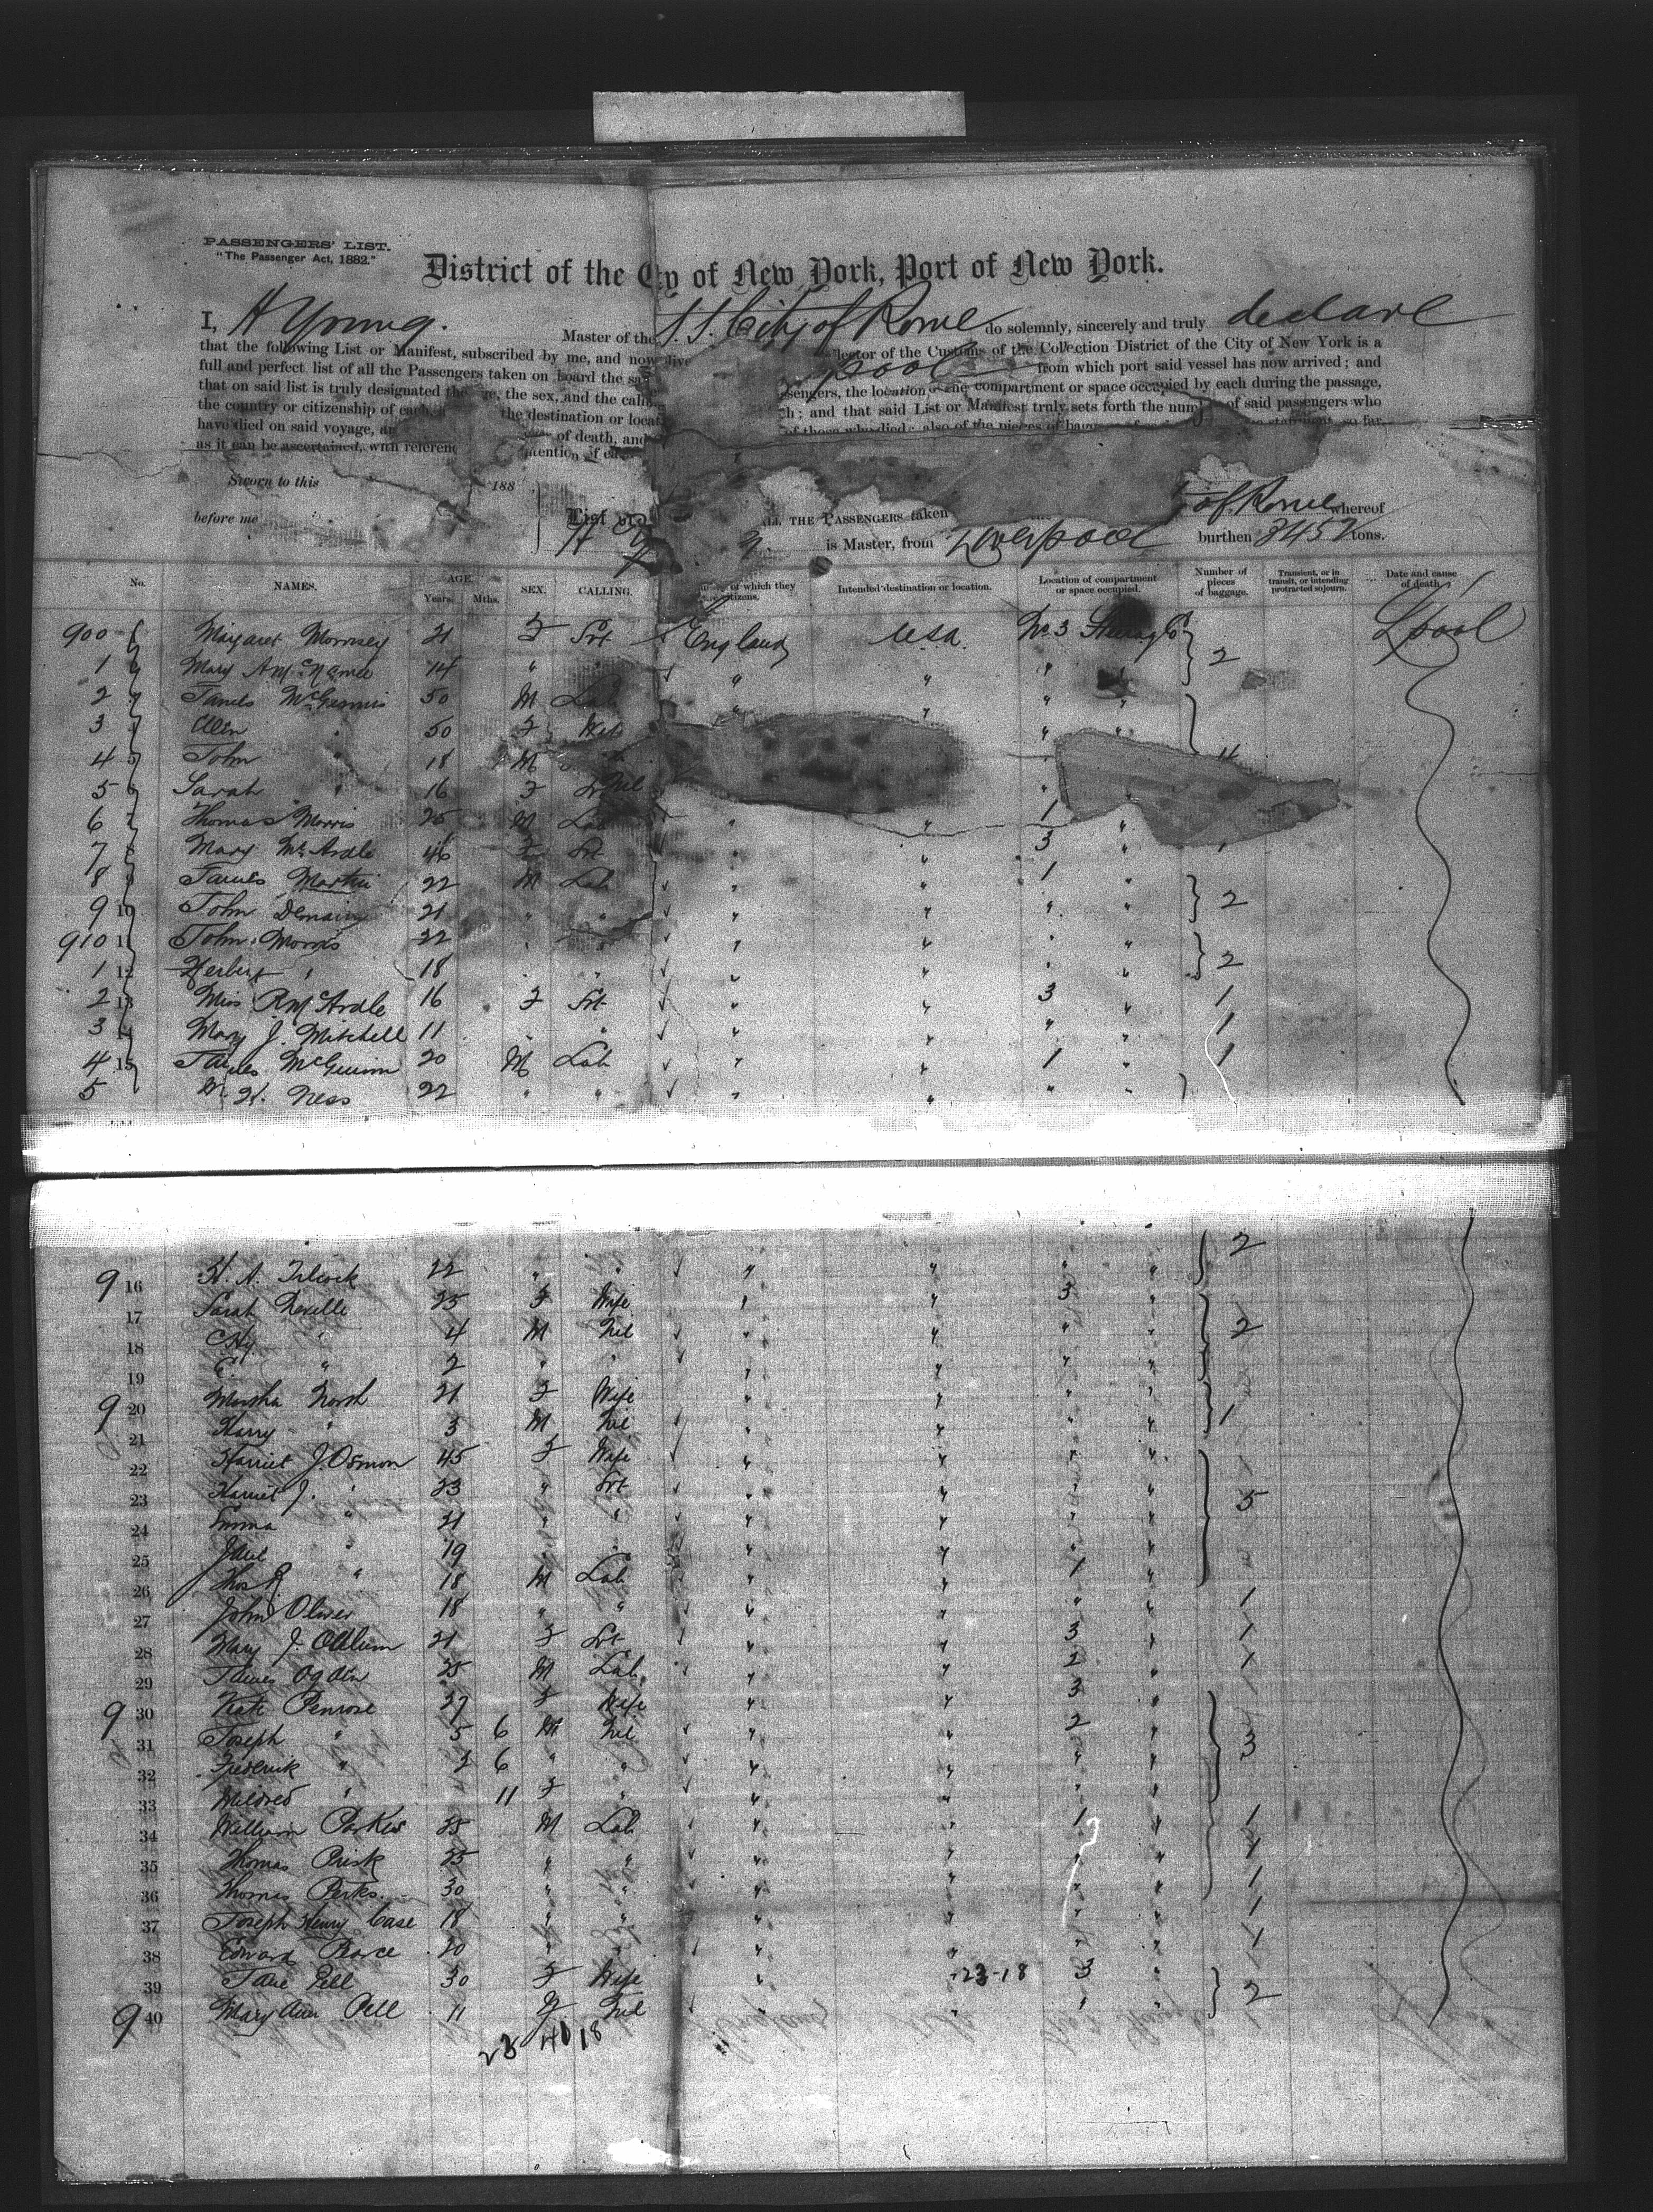 PASSENGERS' LIST.
"The Passenger Act, 1882."
District of the City of New York, Port of New York.
I, H Young. Master of the S.S. City of Rome do solemnly, sincerely and truly declare
that the following List or Manifest, subscribed by me, and now delive lector of the Customs of the Collection District of the City of New York is a
full and perfect list of all the Passengers taken on board the sa pool from which port said vessel has now arrived; and
that on said list is truly designated the age, the sex, and the calli ssengers, the location of the compartment or space occupied by each during the passage,
the country or citizenship of each, the destination or locat ch; and that said List or Manifest truly sets forth the number of said passengers who
have died on said voyage, an of death, and of those who died; also of the pieces of bagg statement, so far
as it can be ascertained, with referenc intention of
Sworn to this 188
before me
List or ALL THE PASSENGERS taken of Rome whereof
H Y g. is Master, from Liverpool burthen 3452 tons.
No. NAMES. AGE. Years. Mths. SEX. CALLING. of which they citizens. Intended destination or location. Location of compartment or space occupied. Number of pieces of baggage. Transient, or in transit, or intending protracted sojourn. Date and cause of death.
900 Margaret Morrisey 21 F Srt England USA No. 3 Steerage 2 Lpool
1 Mary A McNamee 14 " " " "
2 James McGinnis 50 M Lab " " " "
3 Ellen " 50 F Wife " "
4 5 John 18 M 4
5 6 Sarah " 16 F Srt Nil "
6 7 Thomas Morris 25 M Lab " " 1 "
7 8 Mary McArdle 46 F Srt " " 3 "
8 9 James Martin 22 M Lab " " 1 "
9 10 John 21 " " " " " " 2
910 11 John Morris 22 " " " " " "
1 12 Herbert " 18 " " " " " " 2
2 13 Miss R McArdle 16 F Srt " " 3 " 1
3 14 Mary J. Mitchell 11 " " " " " " 1
4 15 James McGuinn 20 M Lab " " 1 " 1
5 W. H. Ness 22 " " " " " "
2
9 16 H. A. Silcock 22 " " " " " "
17 Sarah Neville 25 F Wife " " 3 "
18 Hy. " 4 M Nil " " " " 2
19 C. " 2 " " " " " "
9 20 Martha North 21 F Wife " " " "
21 Harry " 3 M Nil " " " " 1
22 Harriet J. Osmon 45 F Wife " " " "
23 Harriet J. " 23 " Srt " " " " 5
24 Emma " 21 " " " " " "
25 Jane " 19 " " " " " "
26 Thos R. " 18 M Lab " " 1 "
27 John Oliver 18 " " " " " " 1
28 Mary J. 21 F Srt " " 3 " 1
29 James Ogden 25 M Lab " " 2 " 1
9 30 Kate Penrose 27 F Wife " " 3 "
31 Joseph " 5 6 M Nil " " 2 " 3
32 Frederick " 2 6 " " " " " "
33 Mildred " 11 F " " " " "
34 William Parkes 25 M Lab " " 1 " 1
35 Thomas Prisk 25 " " " " " " 1
36 Thomas Perks 30 " " " " " " 1
37 Joseph Henry Case 18 " " " " " " 1
38 Edward Pearce 20 " " " " " " 1
39 Jane Pell 30 F Wife " 23-18 3 "
9 40 Mary Ann Pell 11 F Nil " " " " 2
23 41 18